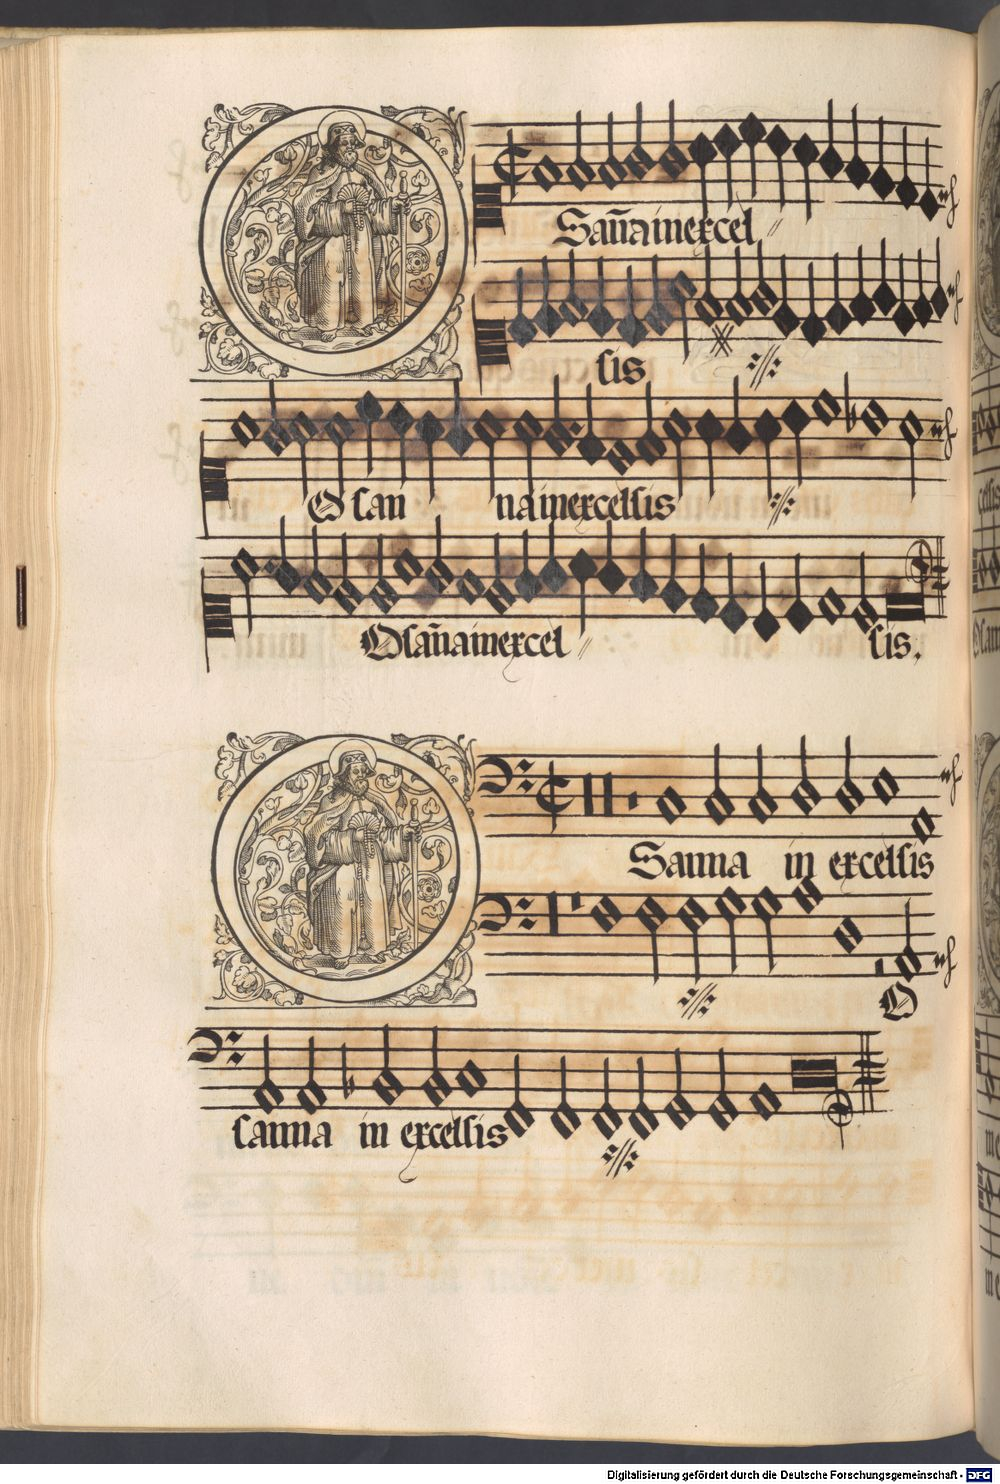 OSan̄a in excel
sis
Osan na in excelsis
Osan̄a in excel sis.
OSanna in excelsis
O
sanna in excelsis
Digitalisierung gefördert durch die Deutsche Forschungsgemeinschaft - DFG